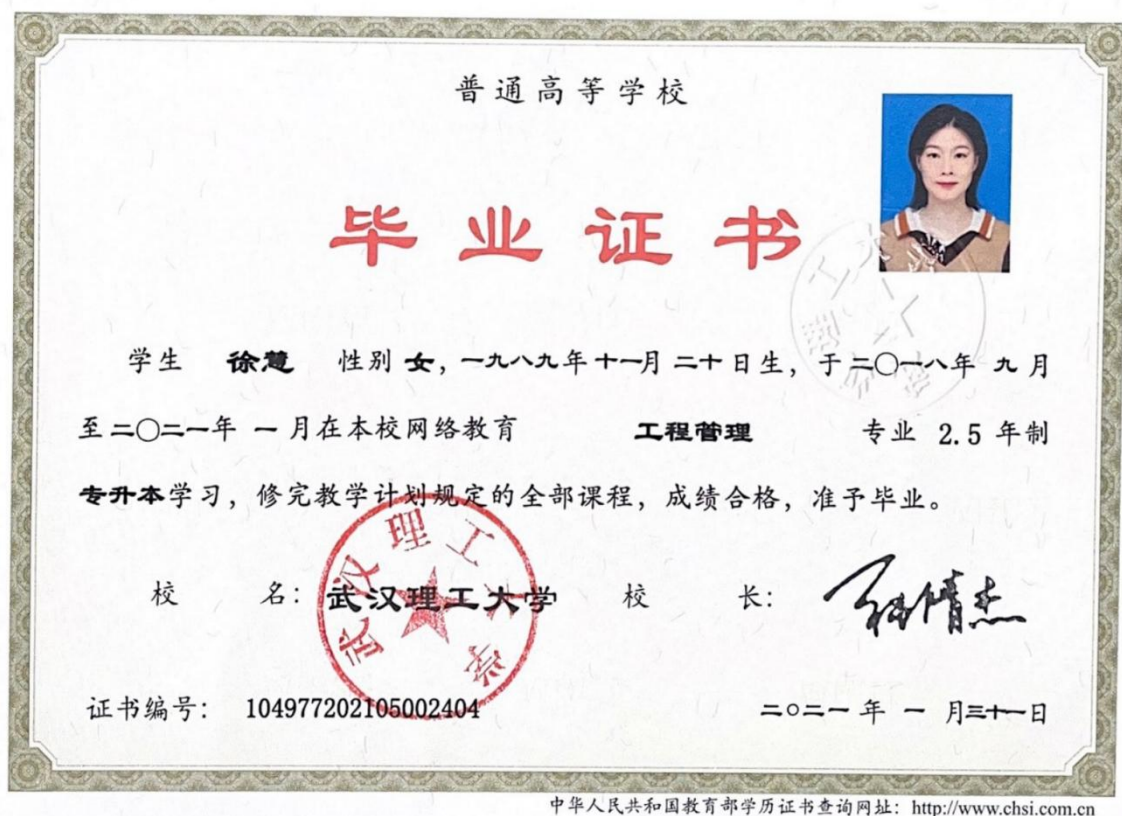 普通高等学校
毕业证书
学生 徐慧 性别 女，一九八九年十一月二十日生，于二〇一八年 九月
至二〇二一年 一月在本校网络教育 工程管理 专业 2.5 年制
专升本学习，修完教学计划规定的全部课程，成绩合格，准予毕业。
校 名：武汉理工大学 校 长：
武汉理工大学
证书编号： 104977202105002404 二〇二一 年 一 月三十一日
中华人民共和国教育部学历证书查询网址：http://www.chsi.com.cn